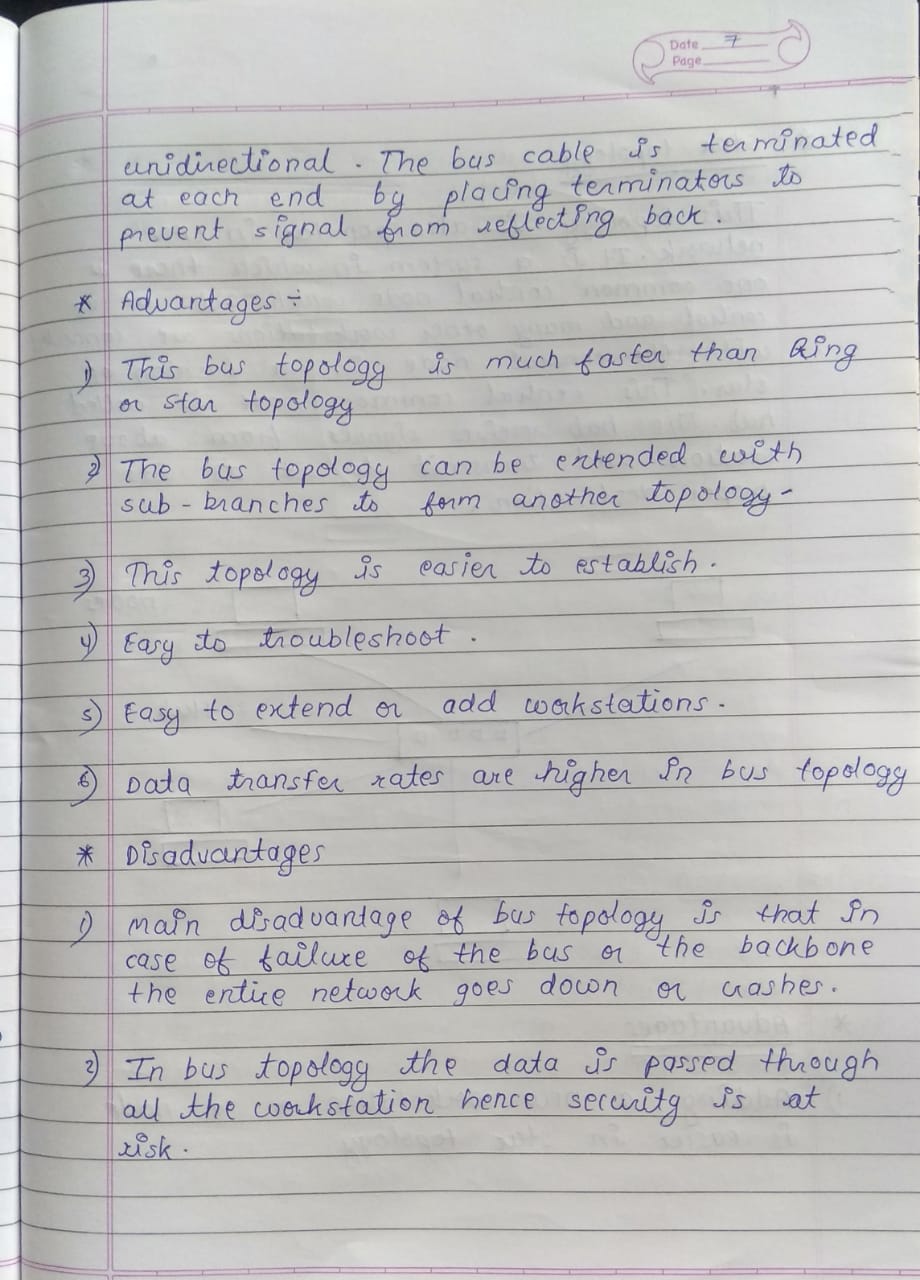 Date 7
Page
unidirectional. The bus cable is terminated
at each end by placing terminators to
prevent signal from reflecting back.
* Advantages ÷
1) This bus topology is much faster than Ring
or star topology
2) The bus topology can be extended with
sub-branches to form another topology-
3) This topology is easier to establish.
4) Easy to troubleshoot.
5) Easy to extend or add workstations.
6) Data transfer rates are higher in bus topology
* Disadvantages
1) Main disadvantage of bus topology is that in
case of failure of the bus or the backbone
the entire network goes down or crashes.
2) In bus topology the data is passed through
all the workstation hence security is at
risk.